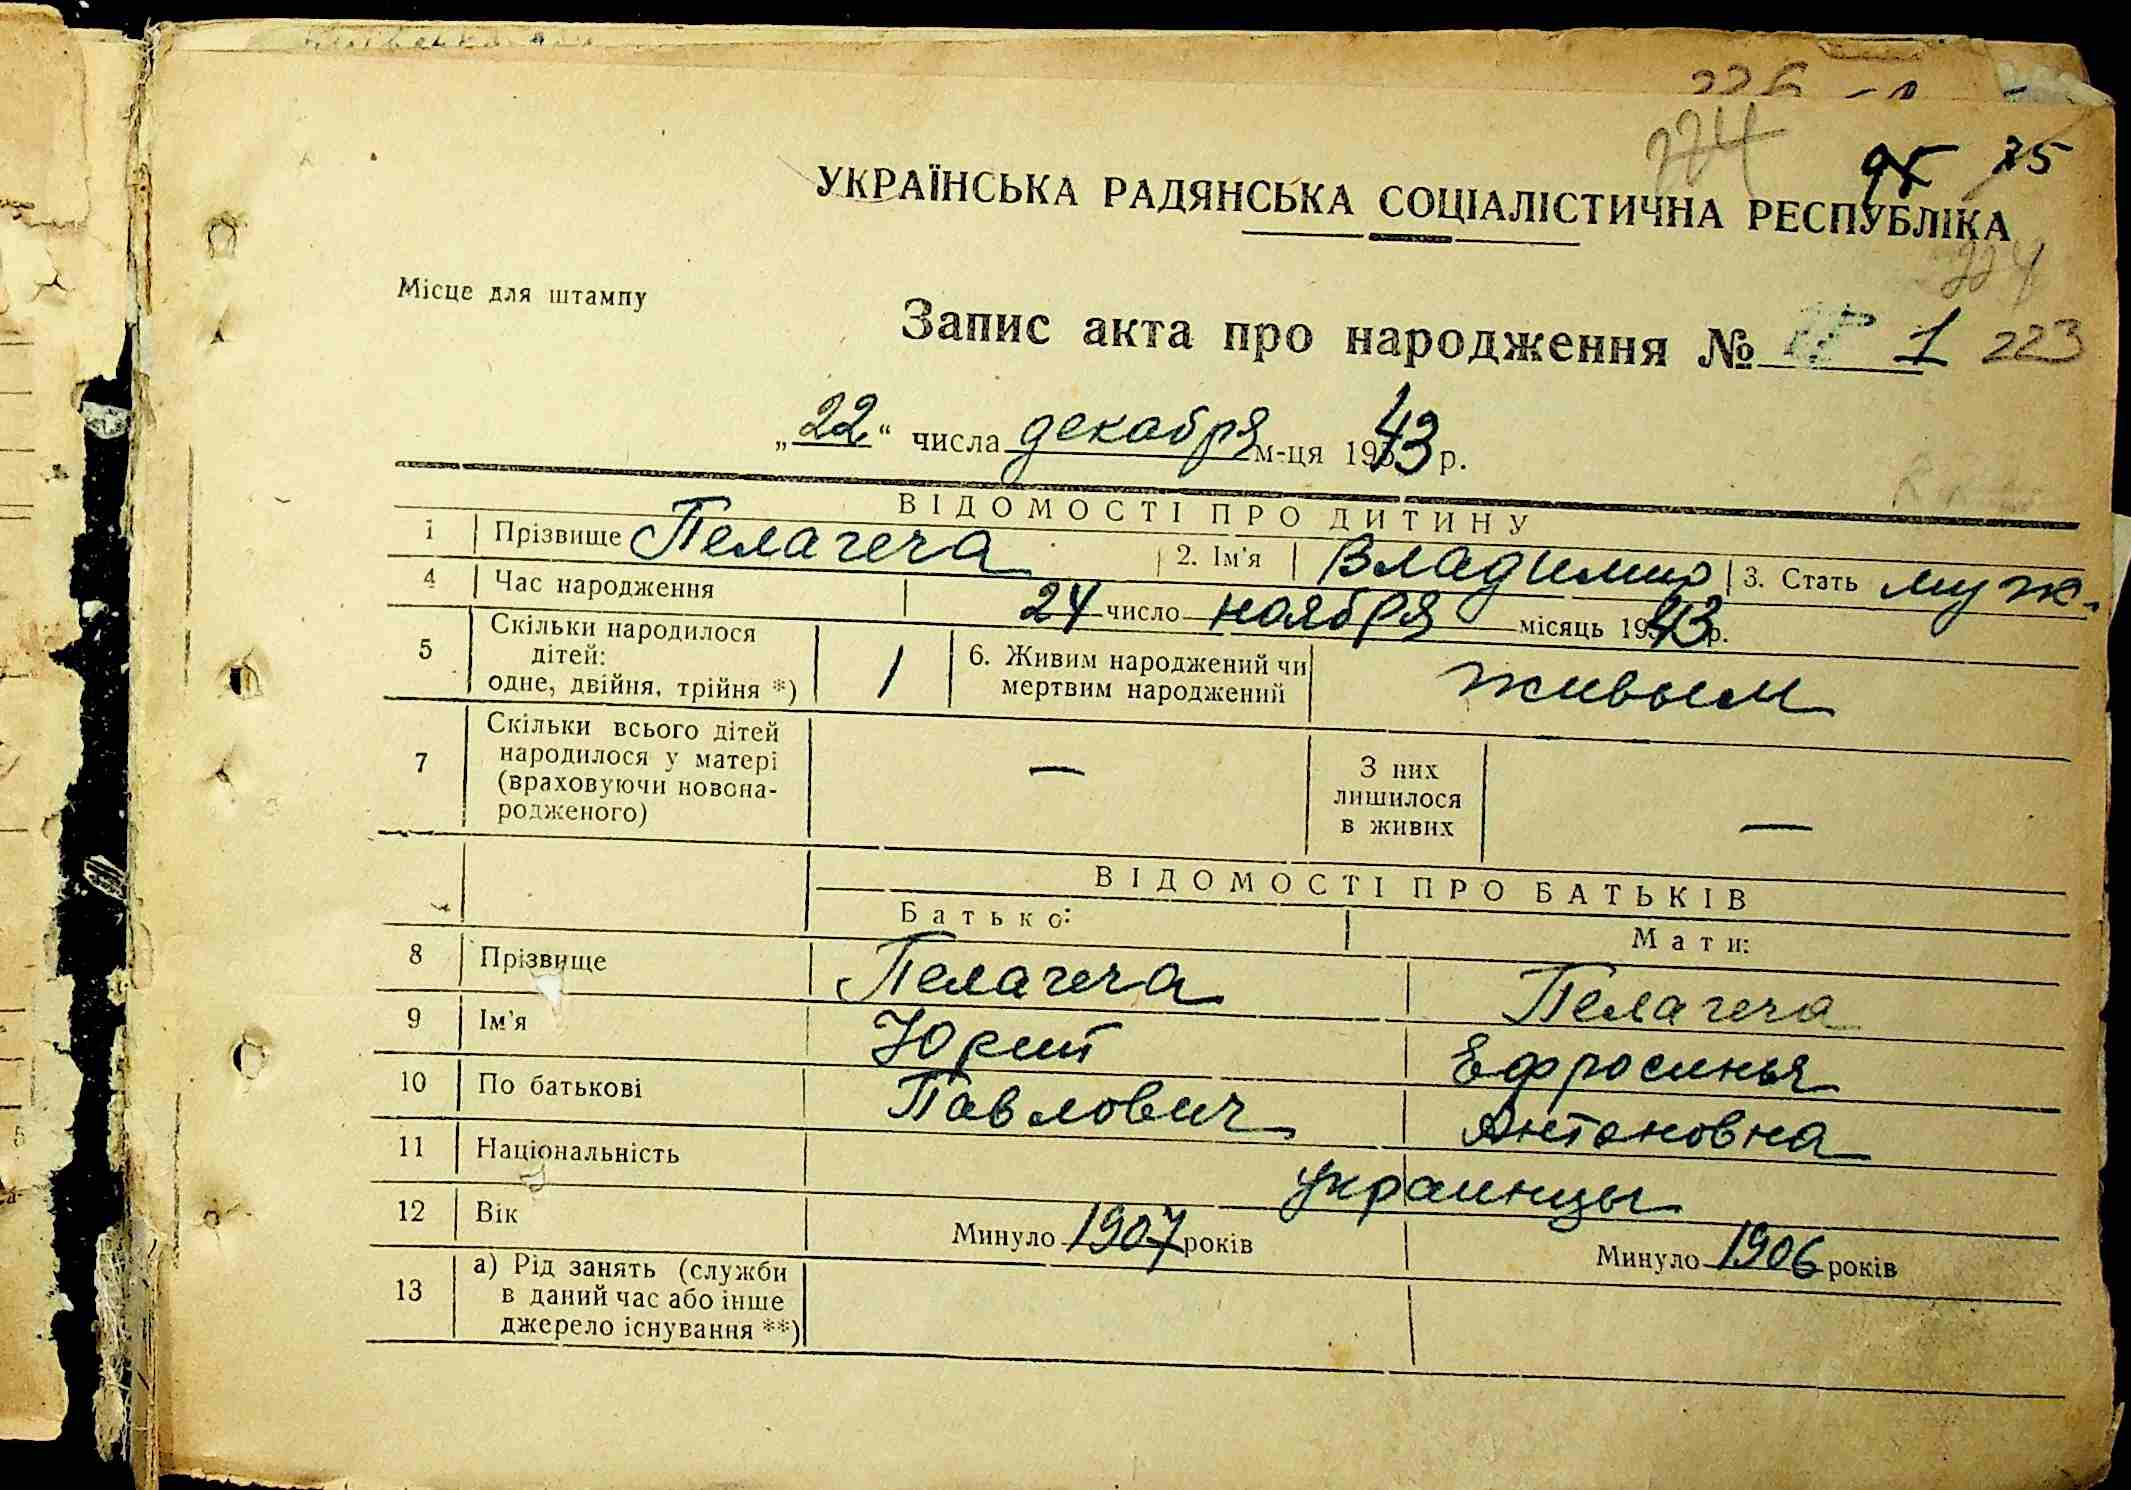 224 95 75
УКРАЇНСЬКА РАДЯНСЬКА СОЦІАЛІСТИЧНА РЕСПУБЛІКА
224
Місце для штампу
Запис акта про народження № 1 223
„22“ числа декабря м-ця 1943 р.
ВІДОМОСТІ ПРО ДИТИНУ
1 Прізвище Пелагеча 2. Ім'я Владимир 3. Стать муж.
4 Час народження 24 число ноября місяць 1943 р.
5 Скільки народилося дітей: одне, двійня, трійня *) 1 6. Живим народжений чи мертвим народжений живым
7 Скільки всього дітей народилося у матері (враховуючи новона-родженого) — З них лишилося в живих —
ВІДОМОСТІ ПРО БАТЬКІВ
Батько: Мати:
8 Прізвище Пелагеча Пелагеча
9 Ім'я Юрий Ефросинья
10 По батькові Павлович Антоновна
11 Національність украинцы
12 Вік Минуло 1907 років Минуло 1906 років
13 а) Рід занять (служби в даний час або інше джерело існування **)